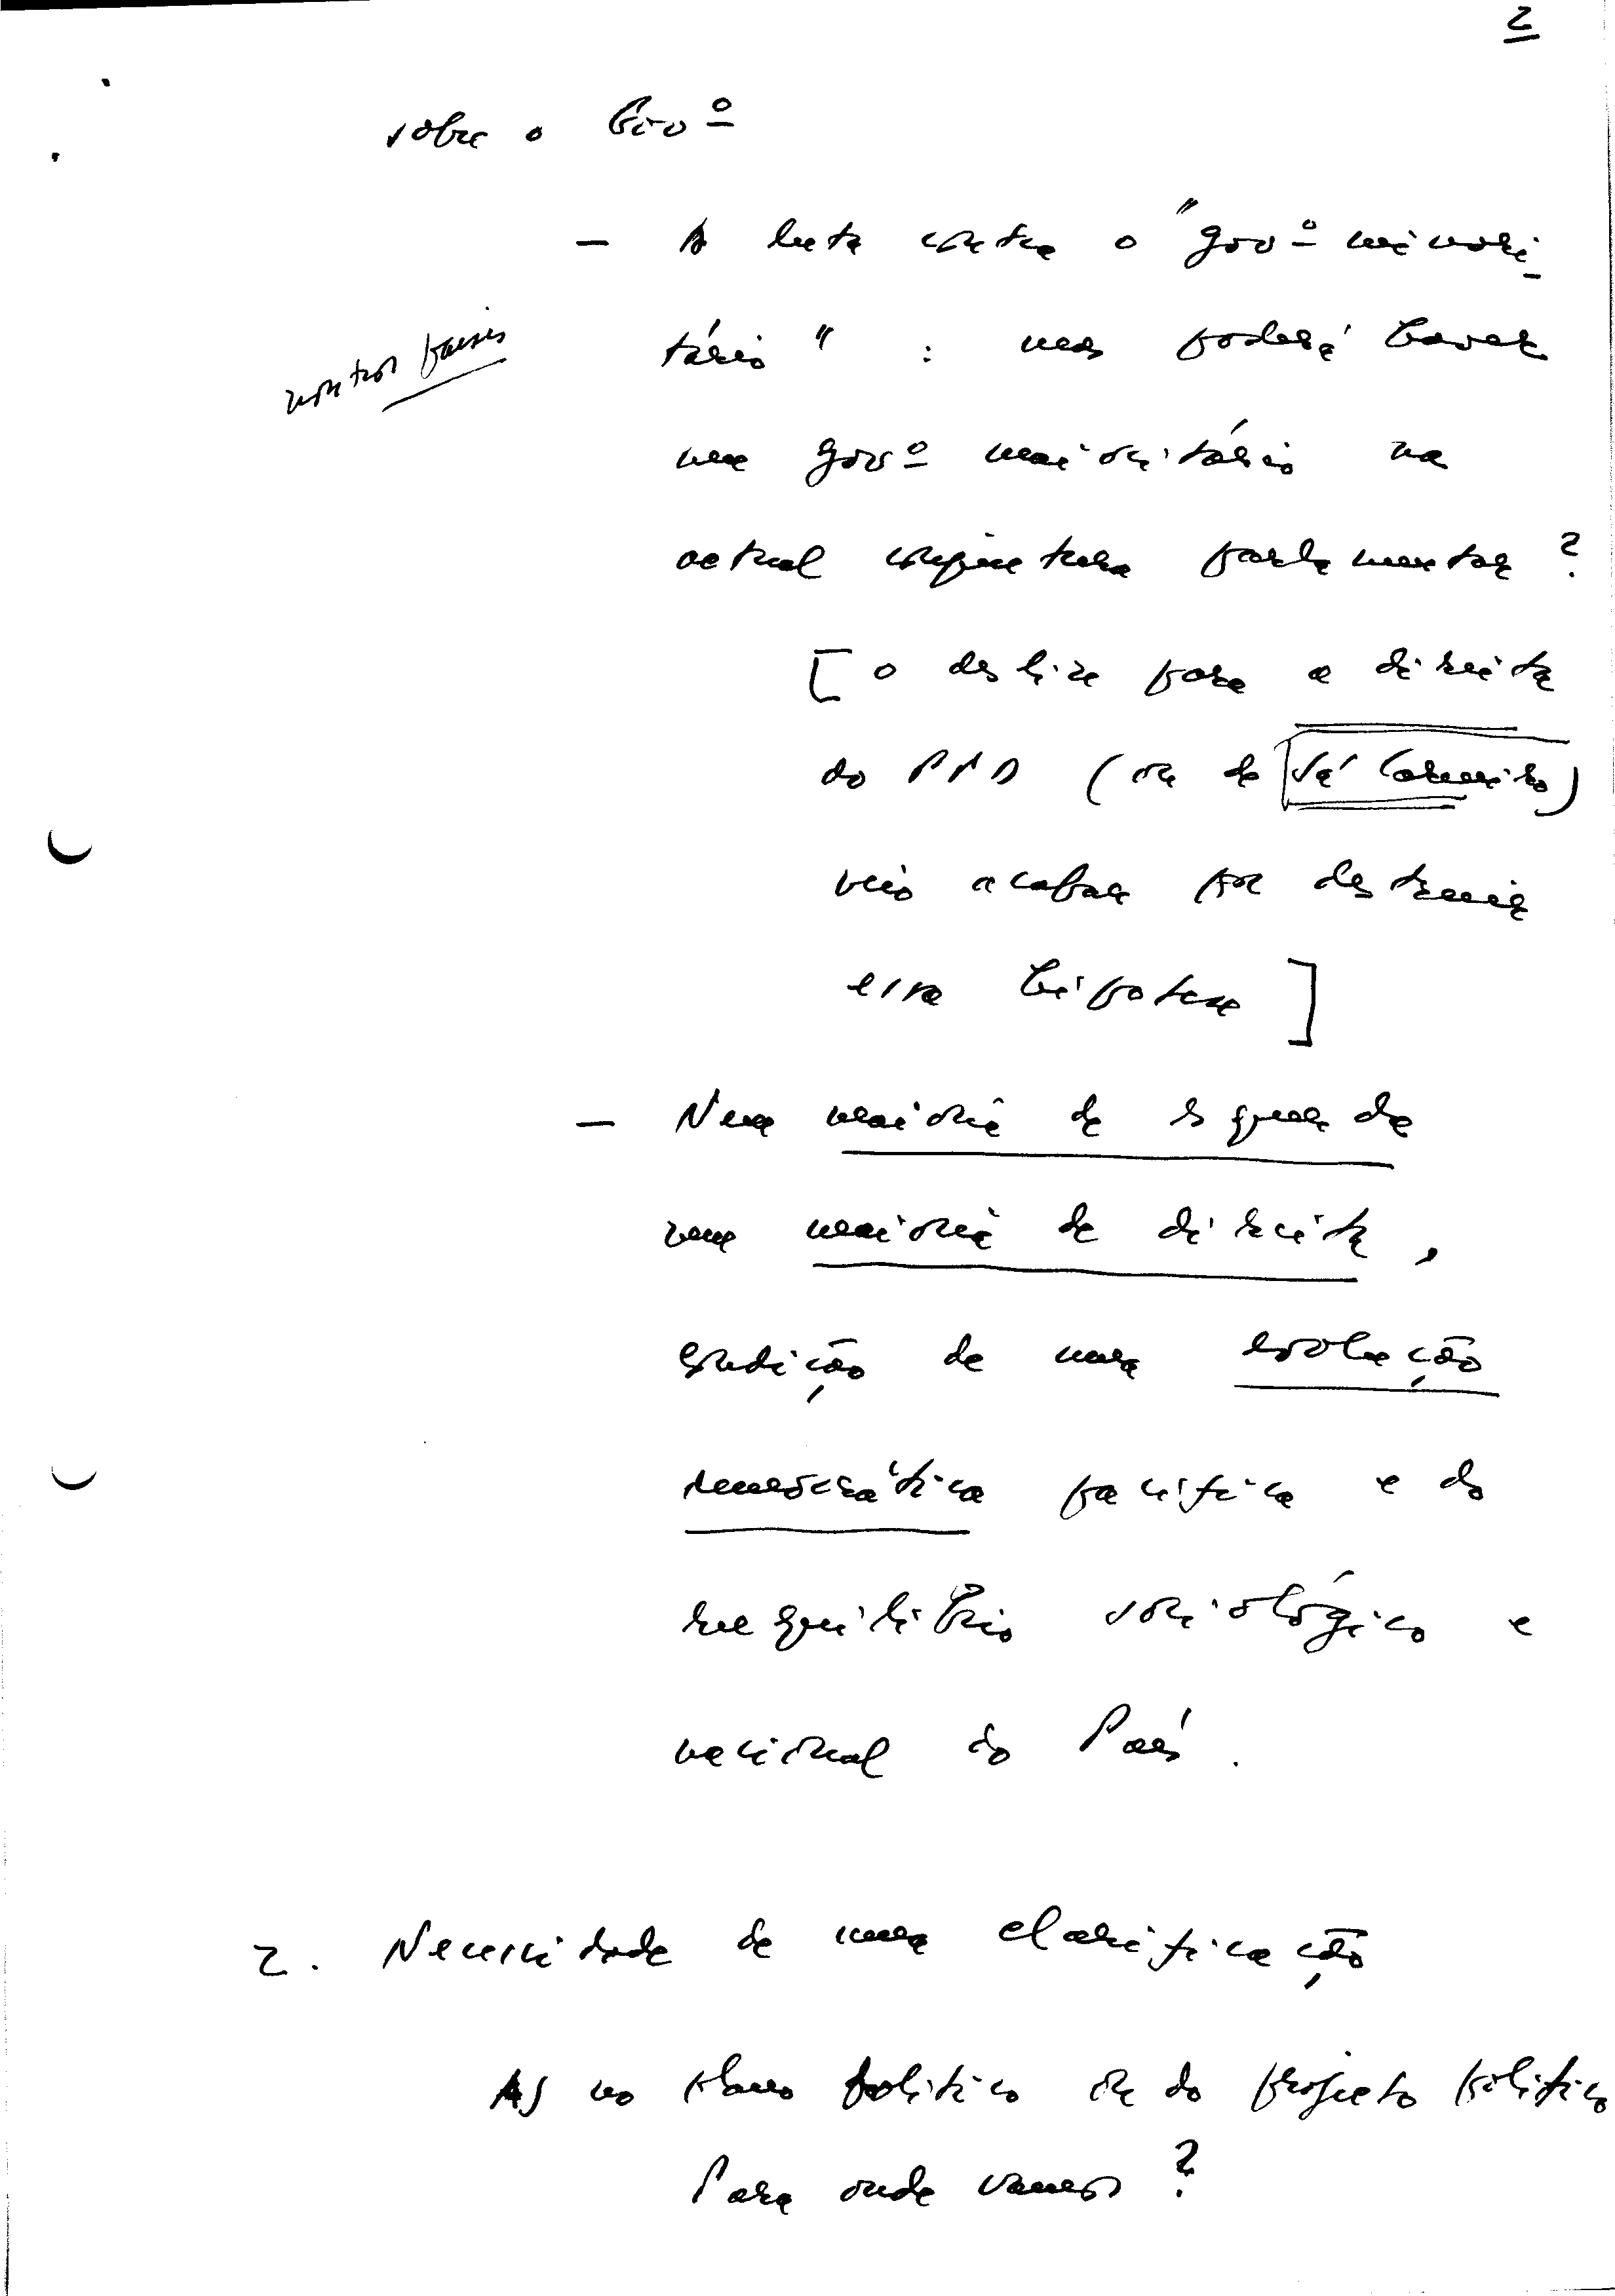 2
sobre o Govº
— A luta contra o "govº minori-
tário" : mas poderá haver
noutros países
um govº maioritário na
actual conjuntura parlamentar ?
[ o deslize para a direita
do PPD (ou de Sá Carneiro)
veio acabar por destruir
essa hipótese ]
— Nem maioria de esquerda
nem maioria de direita,
condição de uma evolução
democrática pacífica e do
reequilíbrio sociológico e
nacional do País.
2. Necessidade de uma clarificação
A) no plano político ou do projecto político
Para onde vamos ?